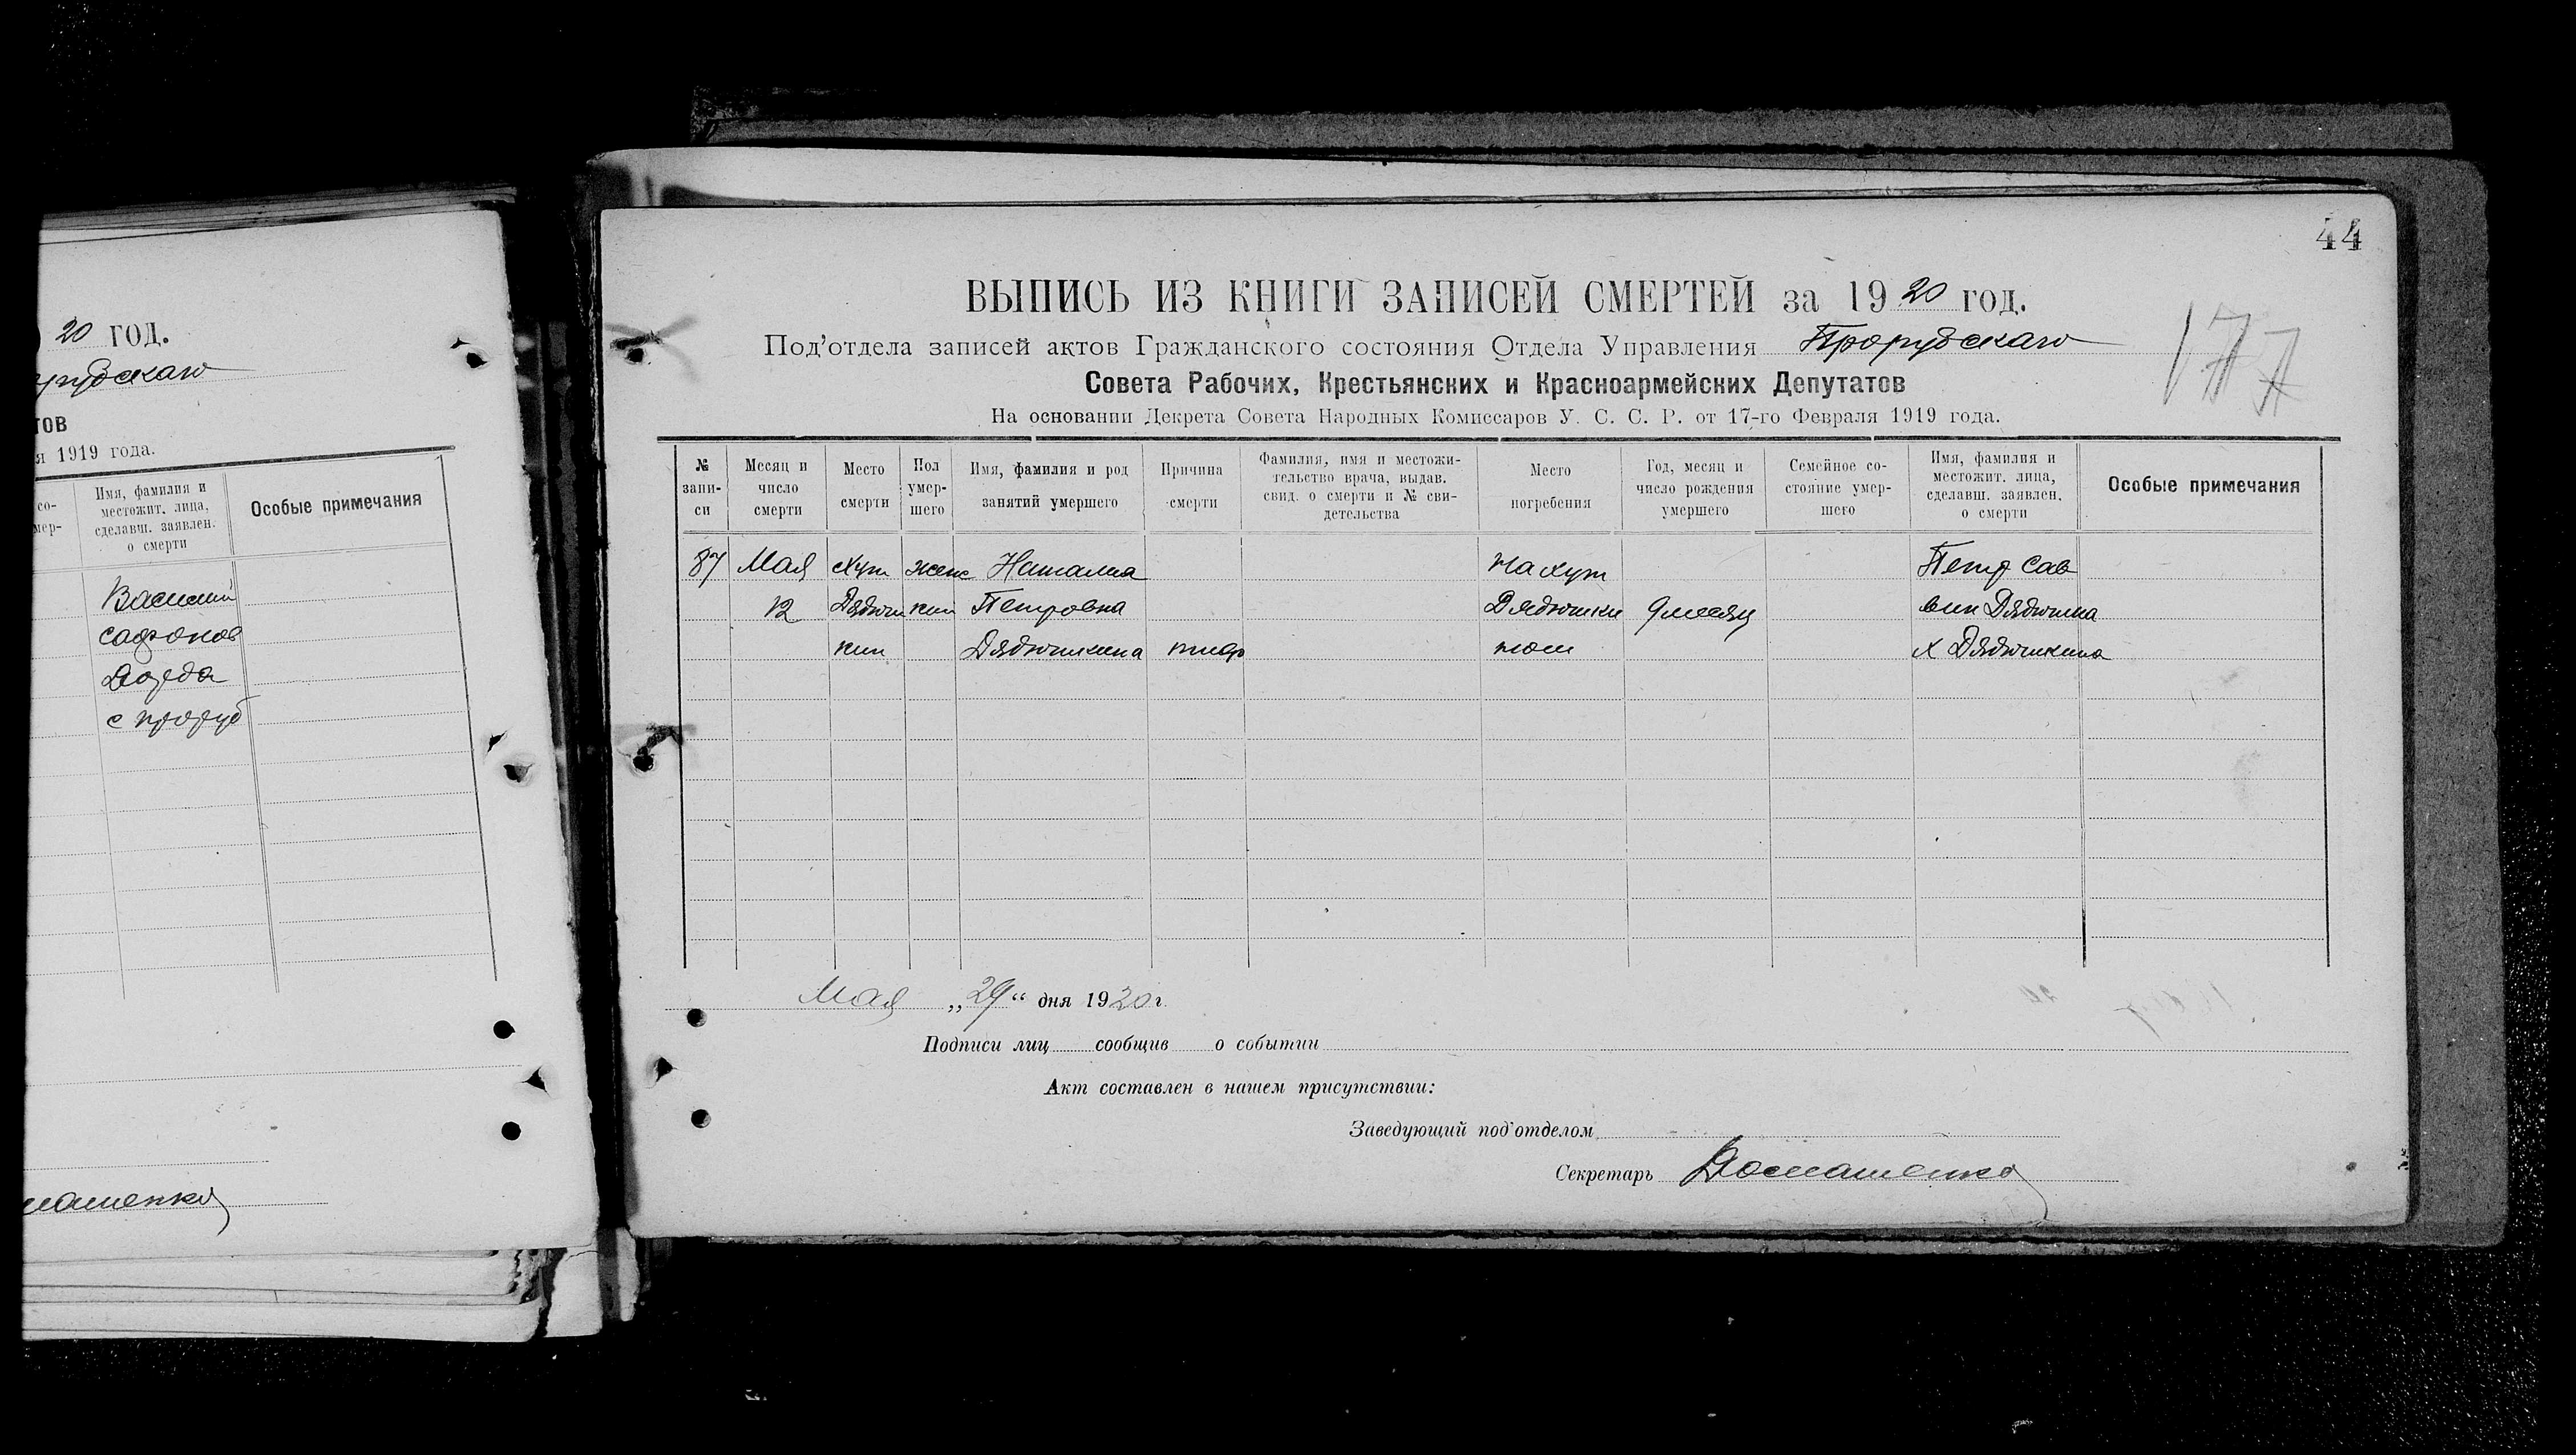 20 ГОД.
тов
я 1919 года.
со-
мер-
Имя, фамилия и
местожит. лица,
сделавш. заявлен.
о смерти
Особые примечания
Василий
сафонов
с проруб
машенко
44
ВЫПИСЬ ИЗ КНИГИ ЗАПИСЕЙ СМЕРТЕЙ за 1920 год.
Под'отдела записей актов Гражданского состояния Отдела Управления Прорубскаго
177
Совета Рабочих, Крестьянских и Красноармейских Депутатов
На основании Декрета Совета Народных Комиссаров У. С. С. Р. от 17-го Февраля 1919 года.
№
запи-
си
Месяц и
число
смерти
Место
смерти
Пол
умер-
шего
Имя, фамилия и род
занятий умершего
Причина
смерти
Фамилия, имя и местожи-
тельство врача, выдав.
свид. о смерти и № сви-
детельства
Место
погребения
Год, месяц и
число рождения
умершего
Семейное со-
стояние умер-
шего
Имя, фамилия и
местожит. лица,
сделавш. заявлен.
о смерти
Особые примечания
87 Мая хут женс Наталиа на хут Петр Сав
12 Дядюш кии Петровна Дядюшки 9 месяц вин Дядюшка
кин Дядюшкина тиф ном х Дядюшкина
Мая „29“ дня 1920 г.
Подписи лиц сообщив о событии
Акт составлен в нашем присутствии:
Заведующий под'отделом
Секретарь Домашенко